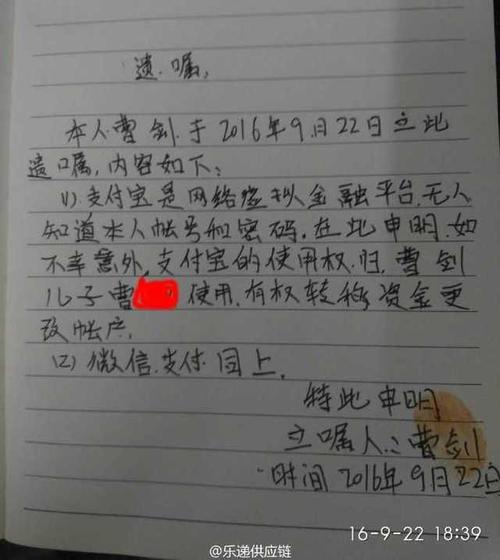 遗嘱,
本人曹剑于2016年9月22日立此
遗嘱,内容如下:
(1)支付宝是网络虚拟金融平台,无人
知道本人帐号和密码,在此申明,如
不幸意外,支付宝的使用权,归,曹剑
儿子曹 使用,有权转移资金更
改帐户,
(2)微信,支付同上,
特此申明
立嘱人:曹剑
时间2016年9月22日
16-9-22 18:39
@乐递供应链